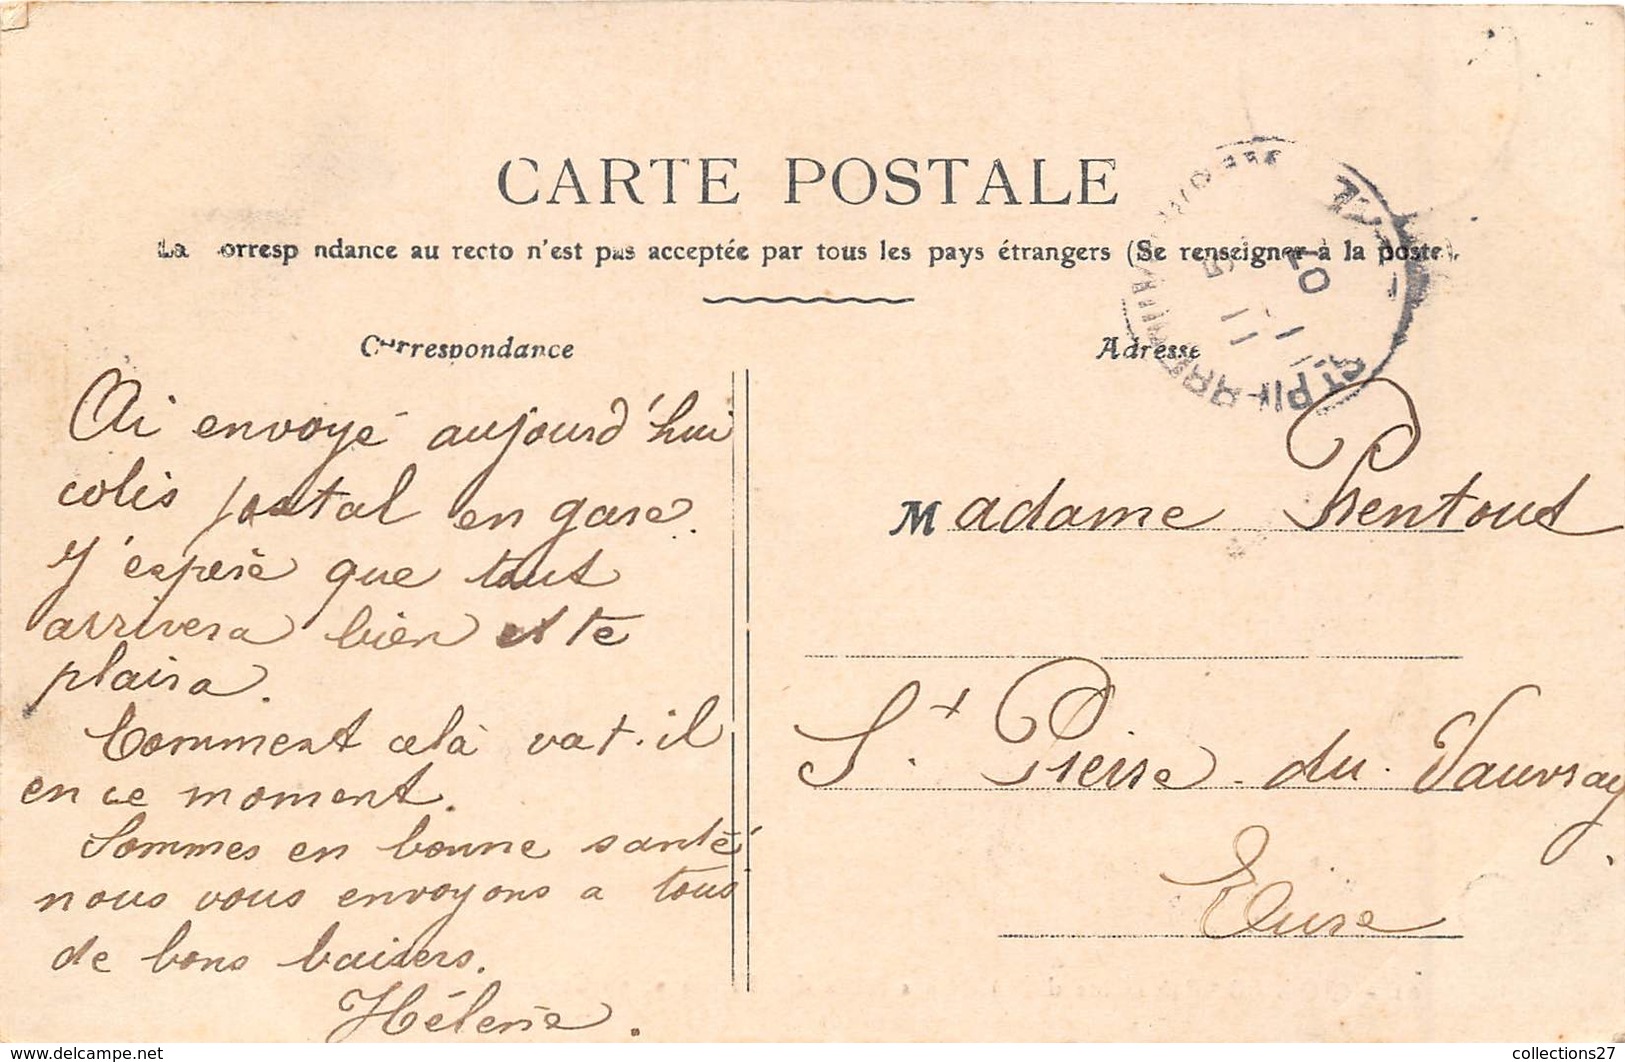 CARTE POSTALE
La orresp ndance au recto n'est pas acceptée par tous les pays étrangers (Se renseigner à la poste).
Correspondance
Ai envoyé aujourd'hui
colis postal en gare.
J'espère que tout
arrivera bien et te
plaira.
Comment celà vat-il
en ce moment.
Sommes en bonne santé
nous vous envoyons a tous
de bons baisers.
Hélène.
Adresse
Madame Prentout
St. Pierre-du-Vauvray
Eure
St PIERRE
5 11
www.delcampe.net
collections27